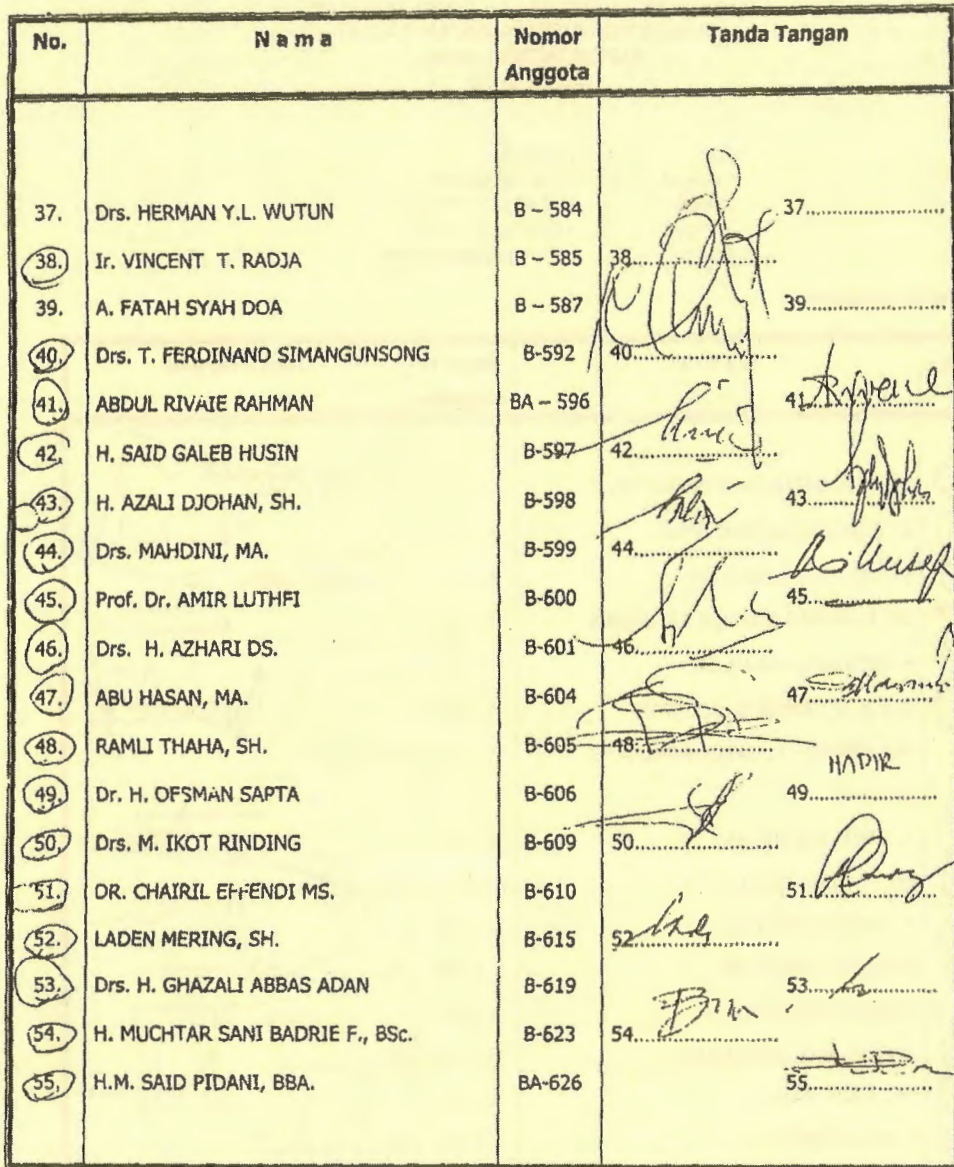 No. Nama Nomor Anggota Tanda Tangan
37. Drs. HERMAN Y.L. WUTUN B – 584 37....................
38. Ir. VINCENT T. RADJA B – 585 38....................
39. A. FATAH SYAH DOA B – 587 39....................
40. Drs. T. FERDINAND SIMANGUNSONG B-592 40....................
41. ABDUL RIVAIE RAHMAN BA – 596 41....................
42. H. SAID GALEB HUSIN B-597 42....................
43. H. AZALI DJOHAN, SH. B-598 43....................
44. Drs. MAHDINI, MA. B-599 44....................
45. Prof. Dr. AMIR LUTHFI B-600 45....................
46. Drs. H. AZHARI DS. B-601 46....................
47. ABU HASAN, MA. B-604 47....................
48. RAMLI THAHA, SH. B-605 48....................
49. Dr. H. OFSMAN SAPTA B-606 49.................... HADIR
50. Drs. M. IKOT RINDING B-609 50....................
51. DR. CHAIRIL EFFENDI MS. B-610 51....................
52. LADEN MERING, SH. B-615 52....................
53. Drs. H. GHAZALI ABBAS ADAN B-619 53....................
54. H. MUCHTAR SANI BADRIE F., BSc. B-623 54....................
55. H.M. SAID PIDANI, BBA. BA-626 55....................